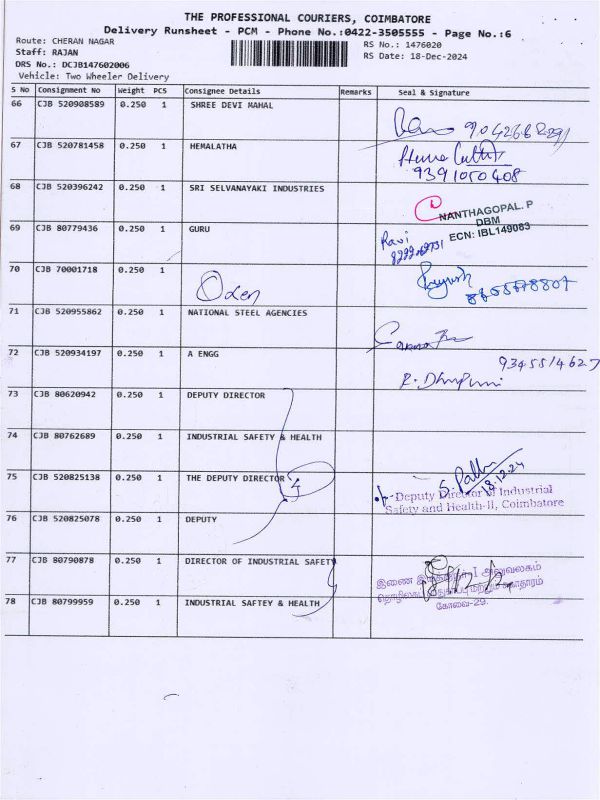 THE PROFESSIONAL COURIERS, COIMBATORE
Delivery Runsheet - PCM - Phone No.:0422-3505555 - Page No.:6
Route: CHERAN NAGAR
RS No.: 1476020
Staff: RAJAN
RS Date: 18-Dec-2024
DRS No.: DCJB147602006
Vehicle: Two Wheeler Delivery
S No Consignment No Weight PCS Consignee Details Remarks Seal & Signature
66 CJB 520908589 0.250 1 SHREE DEVI MAHAL
67 CJB 520781458 0.250 1 HEMALATHA
9391050408
68 CJB 520396242 0.250 1 SRI SELVANAYAKI INDUSTRIES
NANTHAGOPAL. P
DBM
ECN: IBL149083
69 CJB 80779436 0.250 1 GURU
Ravi
70 CJB 70001718 0.250 1
71 CJB 520955862 0.250 1 NATIONAL STEEL AGENCIES
72 CJB 520934197 0.250 1 A ENGG
9345514627
73 CJB 80620942 0.250 1 DEPUTY DIRECTOR
74 CJB 80762689 0.250 1 INDUSTRIAL SAFETY & HEALTH
75 CJB 520825138 0.250 1 THE DEPUTY DIRECTOR
18.12.24
Deputy Director of Industrial
Safety and Health-II, Coimbatore
76 CJB 520825078 0.250 1 DEPUTY
77 CJB 80790878 0.250 1 DIRECTOR OF INDUSTRIAL SAFETY
இணை இயக்குநர்-I அலுவலகம்
தொழிலகப் பாதுகாப்பு மற்றும் சுகாதாரம்
கோவை-29.
78 CJB 80799959 0.250 1 INDUSTRIAL SAFTEY & HEALTH